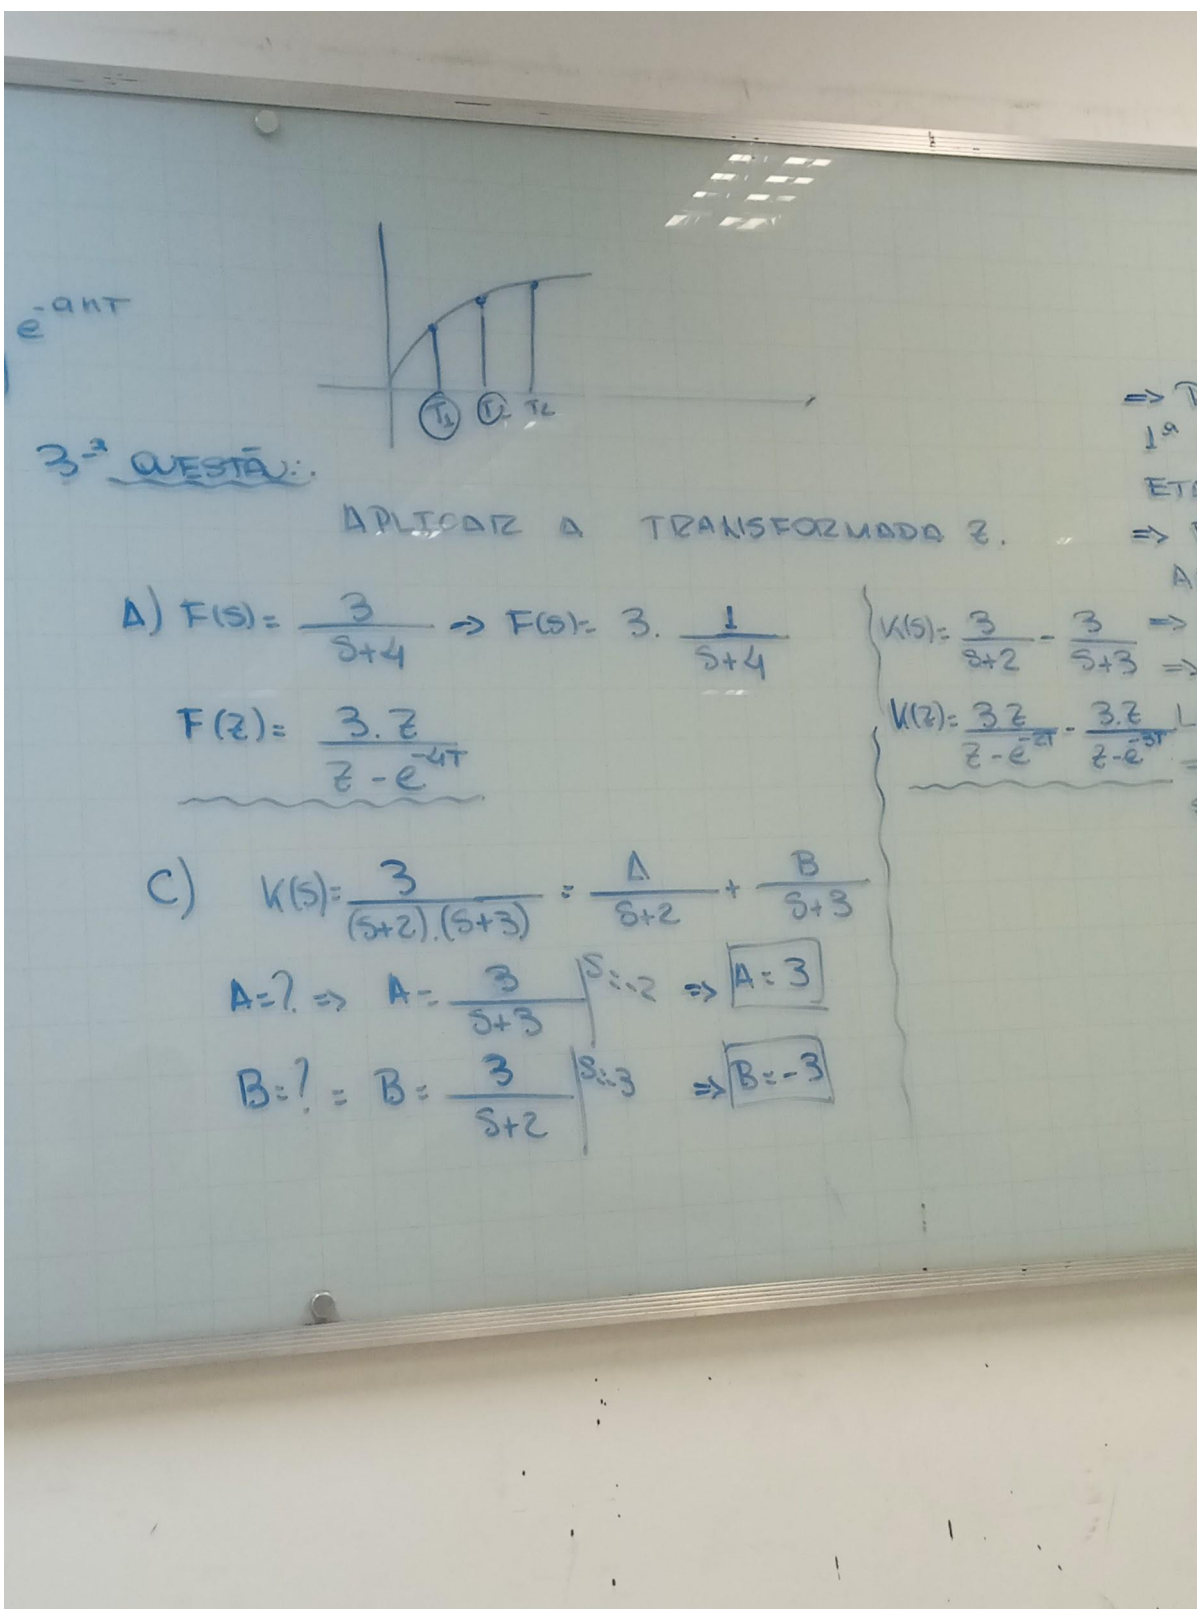 e^-anT
T1 T2 T2
3-ª QUESTÃ:.
APLICAR A TRANSFORMADA Z.
A) F(S)= 3/(S+4) → F(S)= 3. 1/(S+4)
F(Z)= 3.Z/(Z-e^-4T)
C) K(S)= 3/((S+2).(S+3)) = A/(S+2) + B/(S+3)
A=? ⇒ A= 3/(S+3) |S=-2 ⇒ A=3
B=? = B= 3/(S+2) |S=-3 ⇒ B=-3
K(S)= 3/(S+2) - 3/(S+3)
K(Z)= 3Z/(Z-e^-2T) - 3.Z/(Z-e^-3T)
⇒
1ª
⇒
⇒
⇒